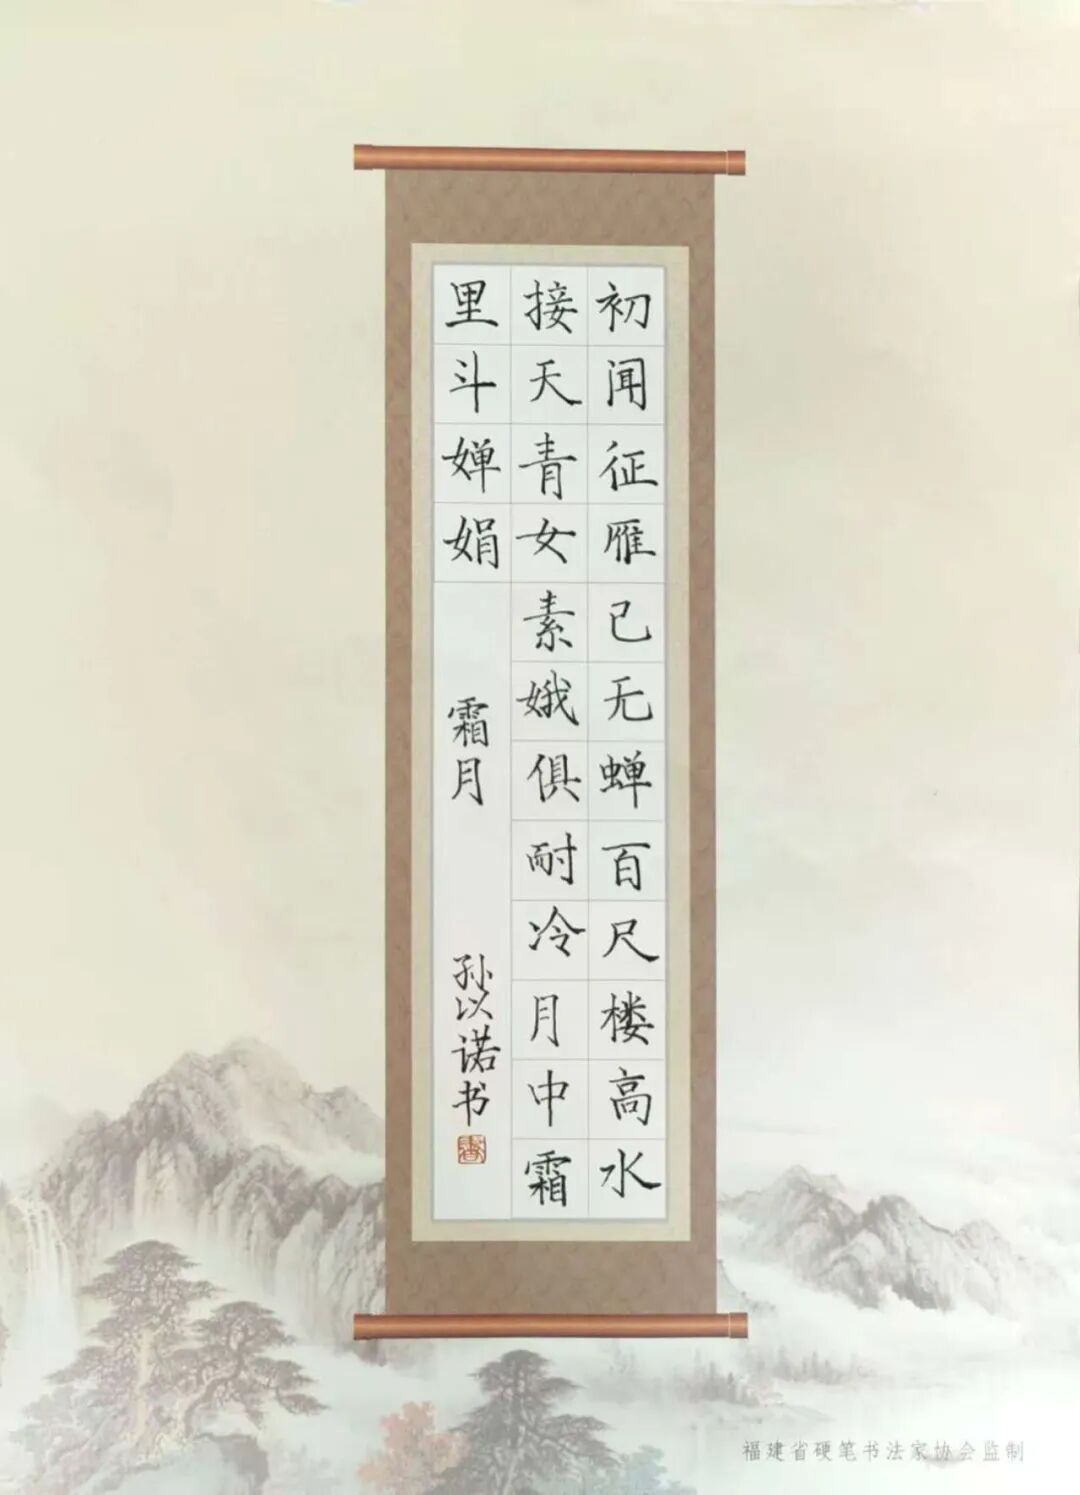 初闻征雁已无蝉百尺楼高水
接天青女素娥俱耐冷月中霜
里斗婵娟
霜月
孙以诺书
福建省硬笔书法家协会监制